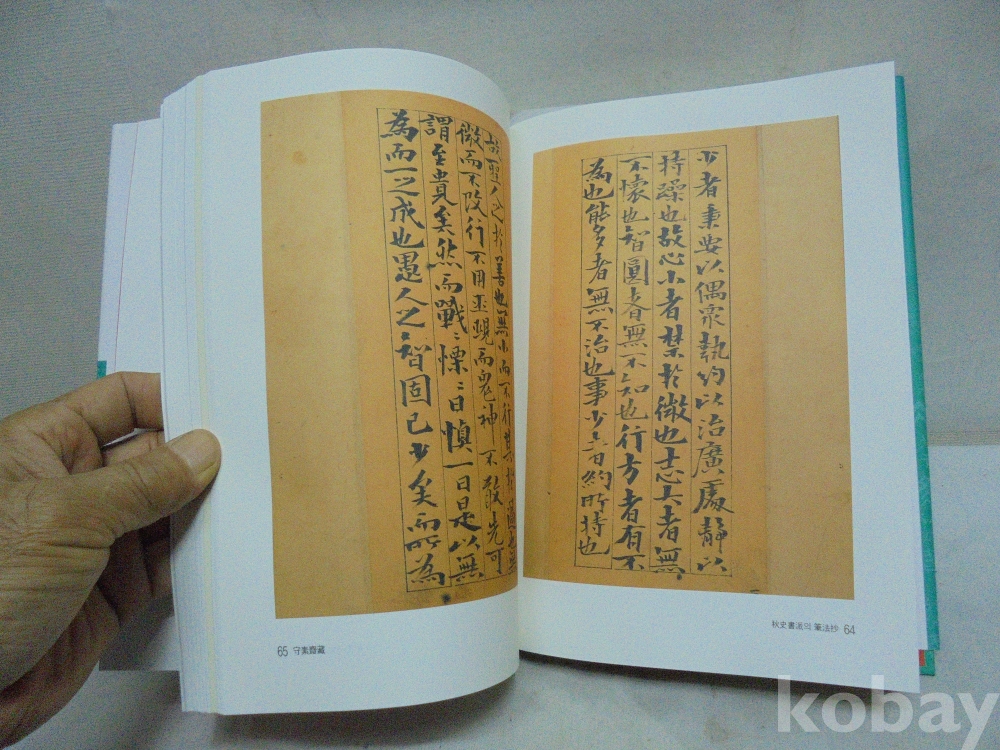 少者秉要以偶衆執約以治廣處靜以
持躁也故心小者禁於微也志大者無
不懷也智圓者無不知也行方者有不
為也能多者無不治也事少者約所持也
秋史書道의 筆法抄 64
故聖人之於善也無小而不行其於過也
微而不改行不用巫覡而鬼神不敢先可
謂至貴矣然而戰〻慄〻日慎一日是以無
為而一之成也愚人之智固已少矣而所為
65 守素齋藏
kobay